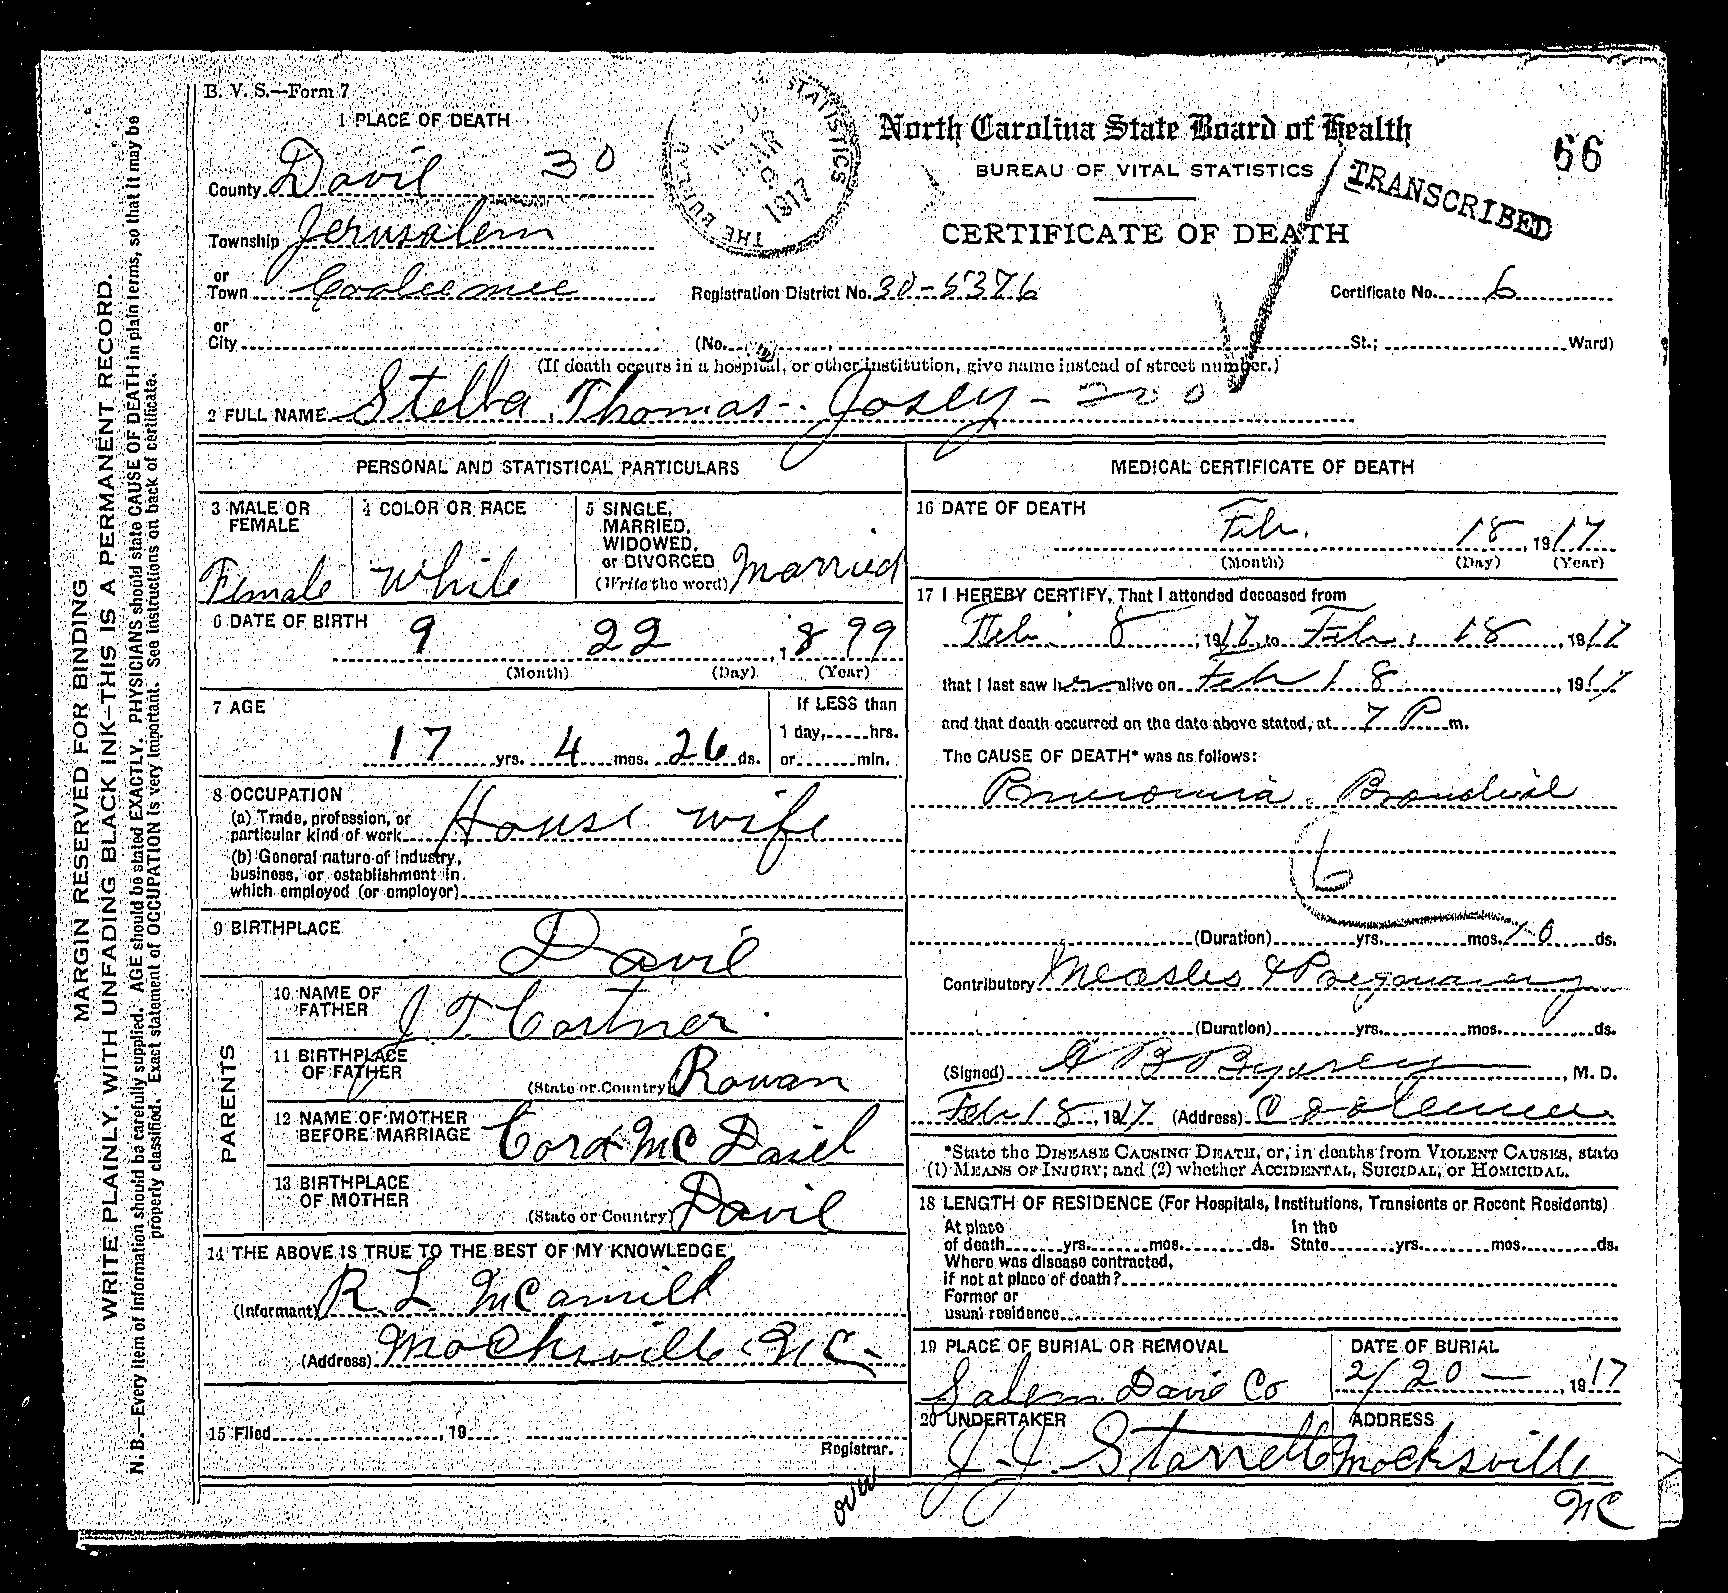 B. V. S.—Form 7
1 PLACE OF DEATH
THE BUREAU STATISTICS 1917
North Carolina State Board of Health
66
BUREAU OF VITAL STATISTICS
TRANSCRIBED
CERTIFICATE OF DEATH
County Davie 30
Township Jerusalem
or
Town Cooleemee
Registration District No. 30-5376
Certificate No. 6
or
City (No. St.; Ward)
(If death occurs in a hospital, or other institution, give name instead of street number.)
2 FULL NAME Stella Thomas Josey - 200
PERSONAL AND STATISTICAL PARTICULARS
3 MALE OR FEMALE Female
4 COLOR OR RACE White
5 SINGLE, MARRIED, WIDOWED, or DIVORCED (Write the word) Married
6 DATE OF BIRTH
9 22 , 899
(Month) (Day) (Year)
7 AGE
If LESS than
1 day, hrs.
17 yrs. 4 mos. 26 ds. or min.
8 OCCUPATION
(a) Trade, profession, or
particular kind of work House wife
(b) General nature of industry,
business, or establishment in
which employed (or employer)
9 BIRTHPLACE
Davie
PARENTS
10 NAME OF FATHER J. T. Cartner
11 BIRTHPLACE OF FATHER
(State or Country) Rowan
12 NAME OF MOTHER BEFORE MARRIAGE Cora McDaniel
13 BIRTHPLACE OF MOTHER
(State or Country) Davie
14 THE ABOVE IS TRUE TO THE BEST OF MY KNOWLEDGE
(Informant) R L
(Address) Mocksville N.C.
15 Filed , 19
Registrar.
over
MEDICAL CERTIFICATE OF DEATH
16 DATE OF DEATH
Feb. 18 , 1917
(Month) (Day) (Year)
17 I HEREBY CERTIFY, That I attended deceased from
Feb 8 , 1917, to Feb. 18 , 1917
that I last saw her alive on Feb 18 , 1917
and that death occurred on the date above stated, at 7 P m.
The CAUSE OF DEATH* was as follows:
Pneumonia, Bronchial
6
(Duration) yrs. mos. 10 ds.
Contributory Measles & Pregnancy
(Duration) yrs. mos. ds.
(Signed) , M. D.
Feb 18, 1917 (Address) Cooleemee
*State the DISEASE CAUSING DEATH, or, in deaths from VIOLENT CAUSES, state
(1) MEANS OF INJURY; and (2) whether ACCIDENTAL, SUICIDAL, or HOMICIDAL.
18 LENGTH OF RESIDENCE (For Hospitals, Institutions, Transients or Recent Residents)
At place In the
of death yrs. mos. ds. State yrs. mos. ds.
Where was disease contracted,
if not at place of death?
Former or
usual residence
19 PLACE OF BURIAL OR REMOVAL
Salem Davie Co
DATE OF BURIAL
2/20 — , 1917
20 UNDERTAKER
J. J. Starrett
ADDRESS
Mocksville
NC
MARGIN RESERVED FOR BINDING
WRITE PLAINLY, WITH UNFADING BLACK INK—THIS IS A PERMANENT RECORD.
N. B.—Every item of information should be carefully supplied. AGE should be stated EXACTLY. PHYSICIANS should state CAUSE OF DEATH in plain terms, so that it may be
properly classified. Exact statement of OCCUPATION is very important. See instructions on back of certificate.